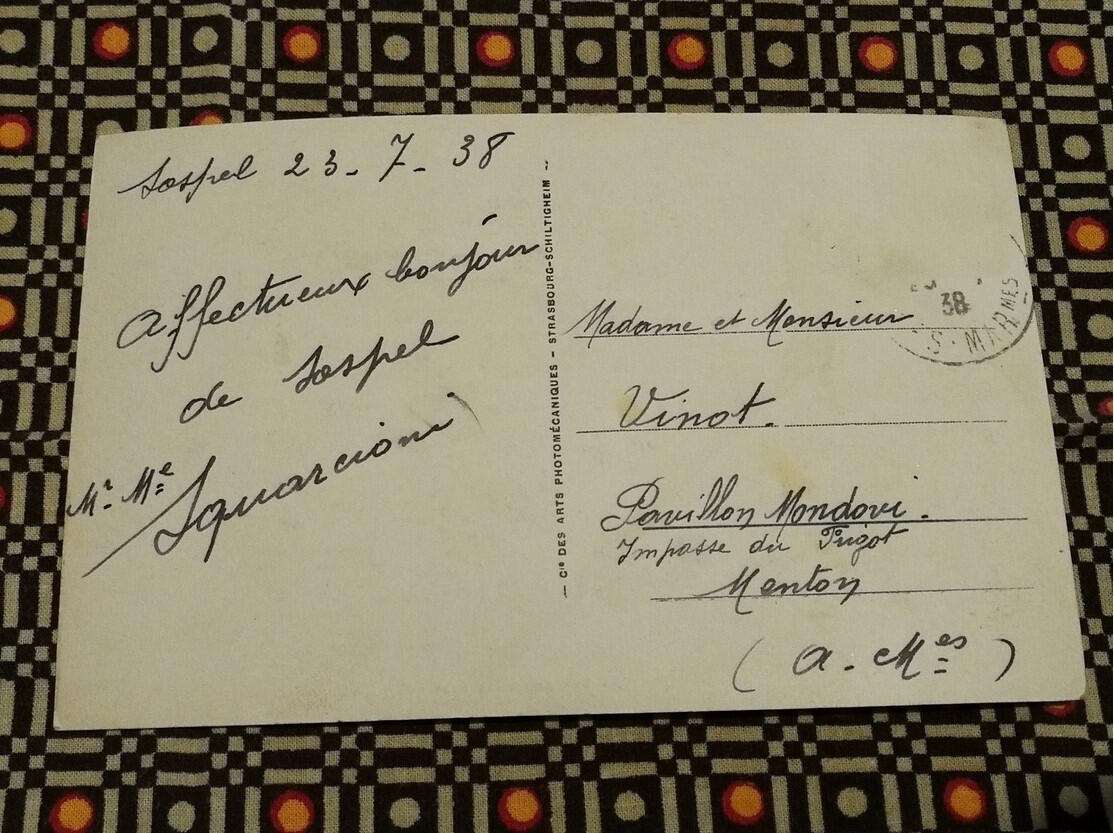 Sospel 23-7-38
Affectueux bonjour
de Sospel
Mr. Me Squarcioni
— Cie DES ARTS PHOTOMÉCANIQUES – STRASBOURG-SCHILTIGHEIM —
38
S-MARMES
Madame et Monsieur
Vinot.
Pavillon Mondovi.
Impasse du
Menton
(A. Mes)